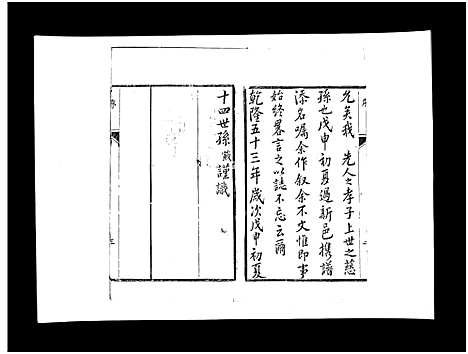 允矣我 先人之孝子上世之慈
孫也戊申初夏過新邑携譜
添名囑余作叙余不文惟即事
始終畧言之以誌不忘云爾
乾隆五十三年歲次戊申初夏
十四世孫 謹識
序
序
三